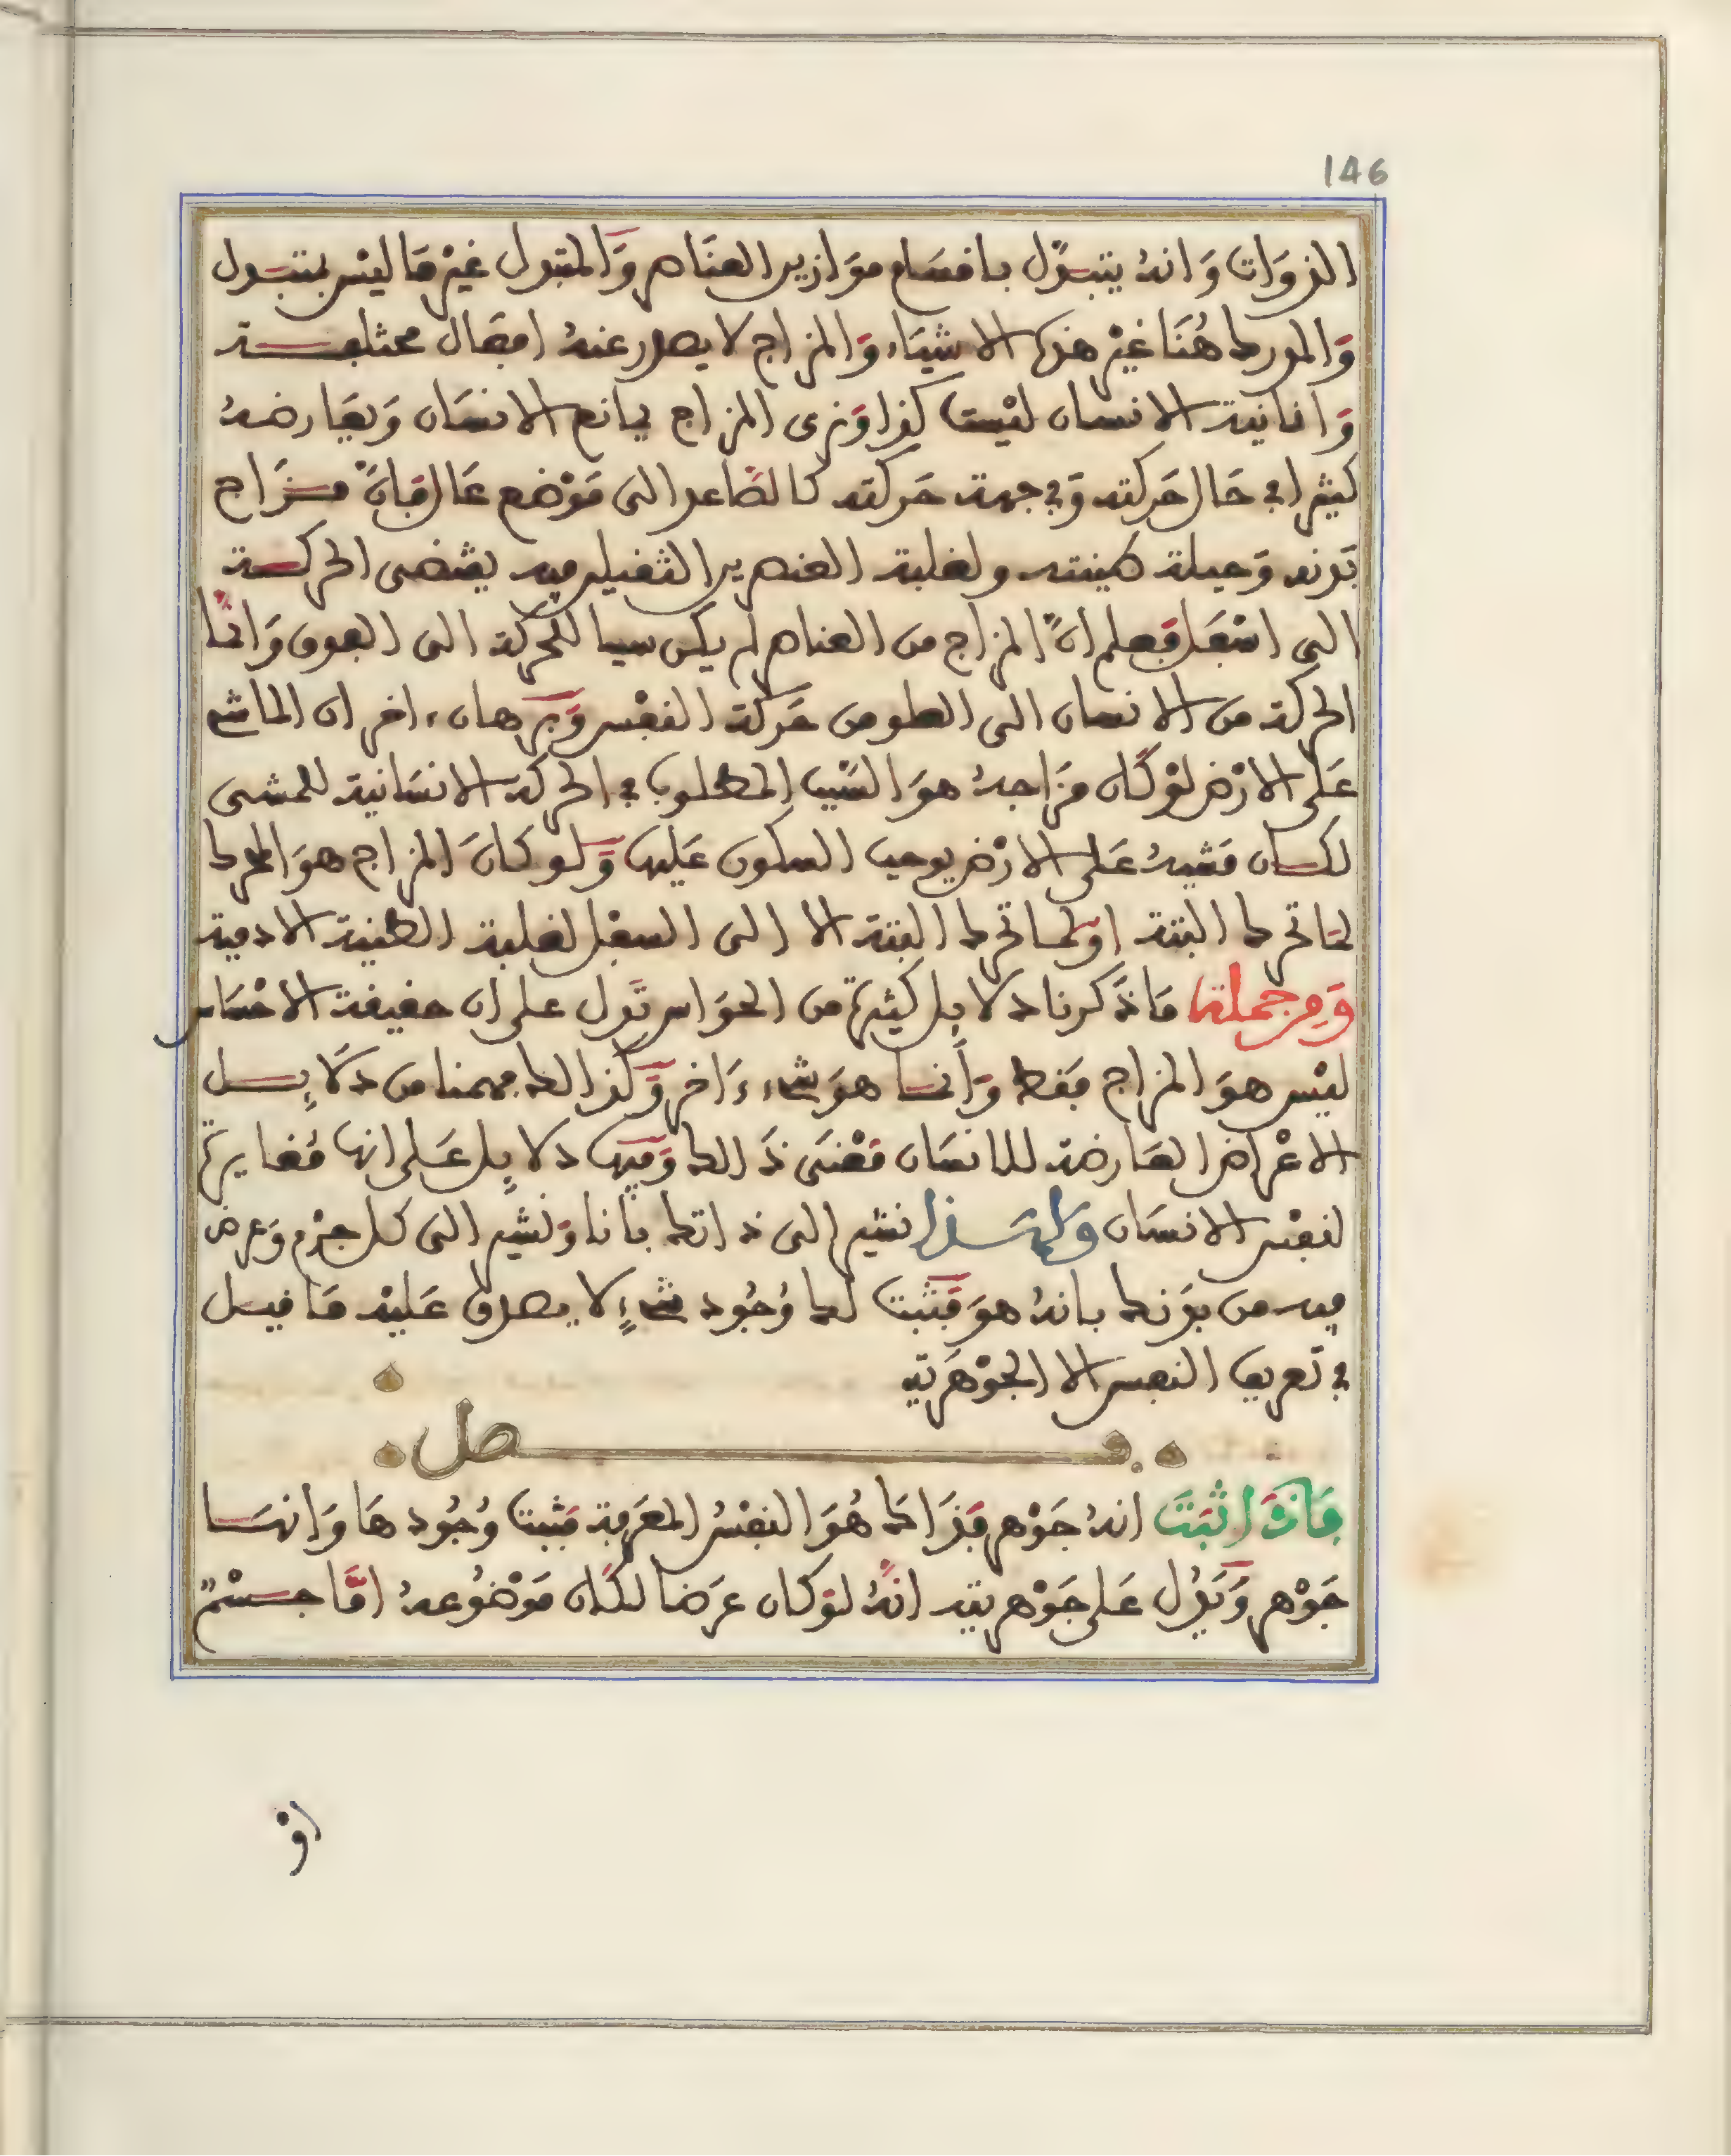 146
الذوات وانه يتبدل باقسام موازين العناصر والمتبدل غير ما ليس بمتبدل
والمدرك هنا غير هذه الاشياء والمزاج لا يصدر عنه افعال مختلفة
وانانية الانسان ليست كذا ونرى المزاج يمانع الانسان ويعارضه
كثيرا في حال حركته وفي جهة حركته كالصاعد الى موضع عال فان مزاج
بدنه وجبلة طينته ولغلبة العنصرين الثقيلين فيه يقتضى الحركة
الى اسفل فعلم ان المزاج من العناصر لم يكن سببا للحركة الى الفوق وانما
الحركة من الانسان الى العلو من حركة النفس وبرهان ءاخر ان الماشي
على الارض لو كان مزاجه هو السبب المطلوب في الحركة الانسانية للمشي
لكان مشيه على الارض يوجب السكون عليها ولو كان المزاج هو المحرك
لما تحرك البتة او لما تحرك البتة الا الى السفل لغلبة الطينية الادمية
ومن جملة ما ذكرنا دلايل كثيرة من الحواس تدل على ان حقيقة الاحساس
ليس هو المزاج فقط وانما هو شيء ءاخر وكذالك فهمنا من دلايل
الاعراض العارضة للانسان معنى ذالك وفيها دلايل على انها مغايرة
لنفس الانسان ولهذا نشير الى ذاتك بانا ونشير الى كل جزء وعرض
فيه من بدنك بانه هو فتثبت لك وجود شيء لا يصدق عليه ما قيل
في تعريف النفس الا الجوهرية
فصل
فاذا ثبت انه جوهر فذاك هو النفس المعرفة فثبت وجودها وانها
جوهر ويدل على جوهريته انه لو كان عرضا لكان موضوعه اما جسم
او